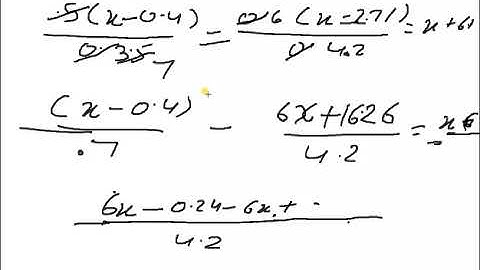 .5(x-0.4)/0.35 7 = 0.6(x-2.71)/0 4.2 = x+61
(x-0.4)/.7 - 6x+1626/4.2 = x6
6x-0.24-6x+ ·/4.2